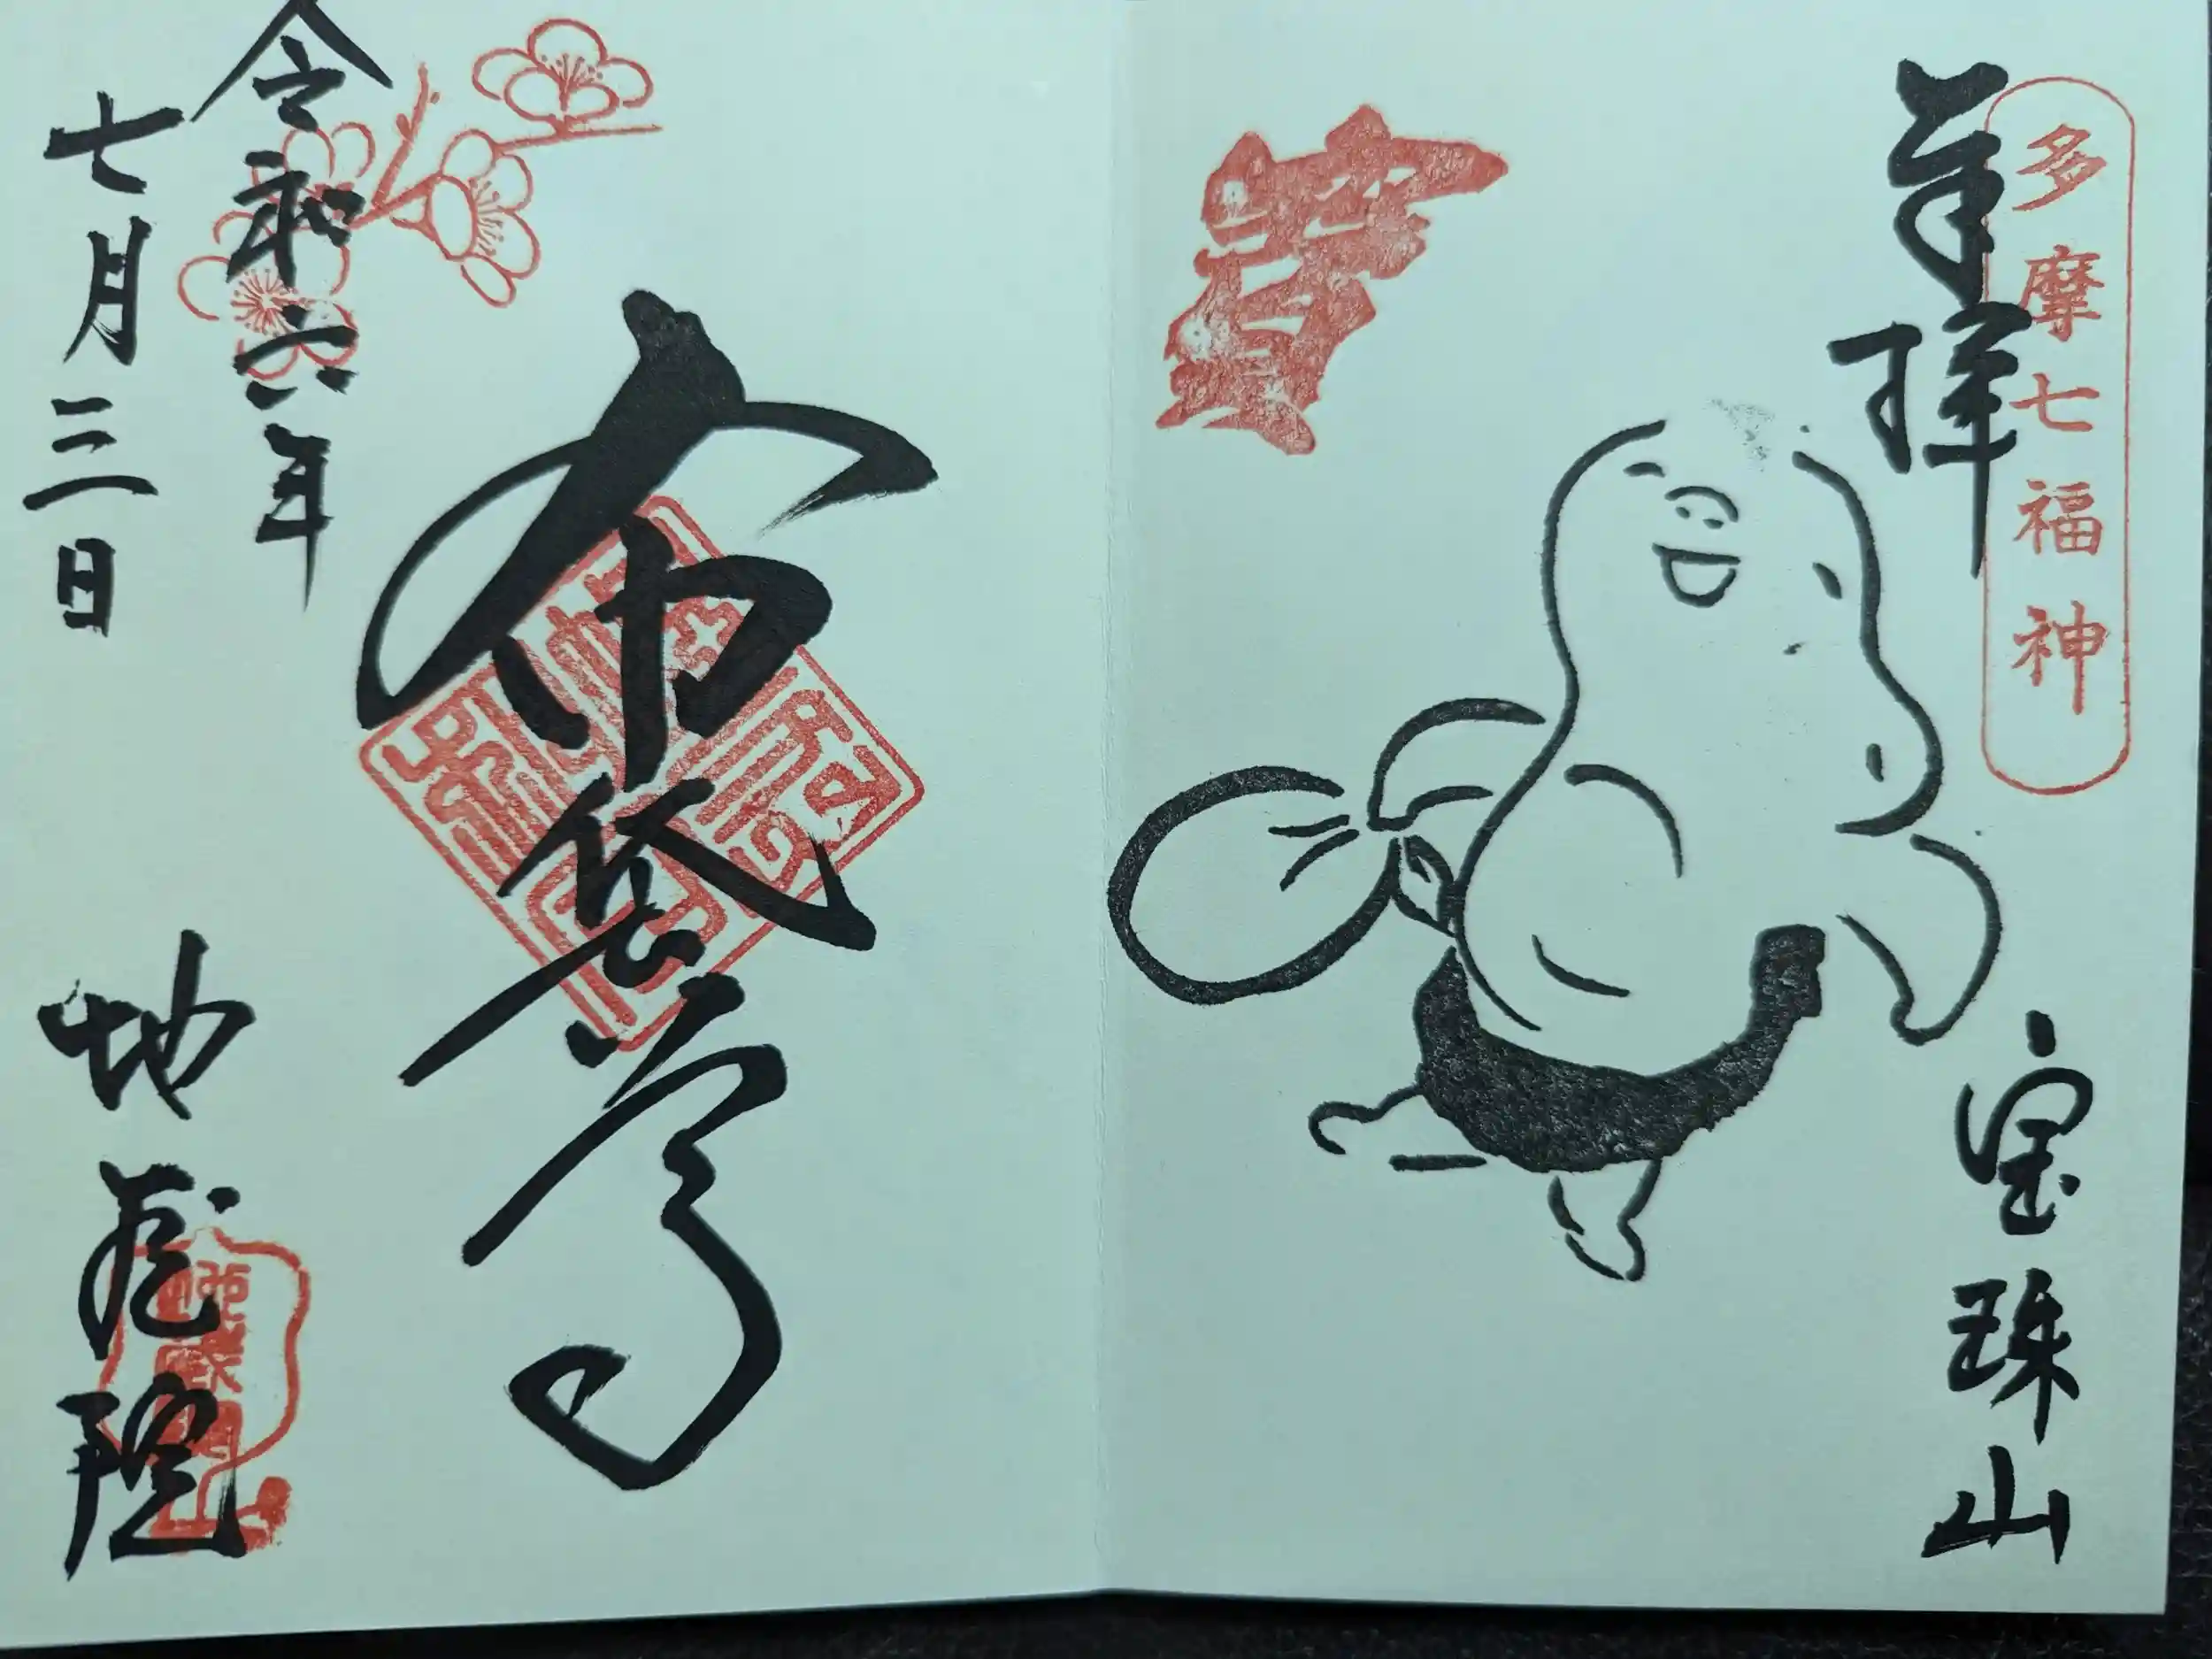 多摩七福神
奉拝
宝珠山
寳
布袋尊
令和六年
七月三日
地蔵院